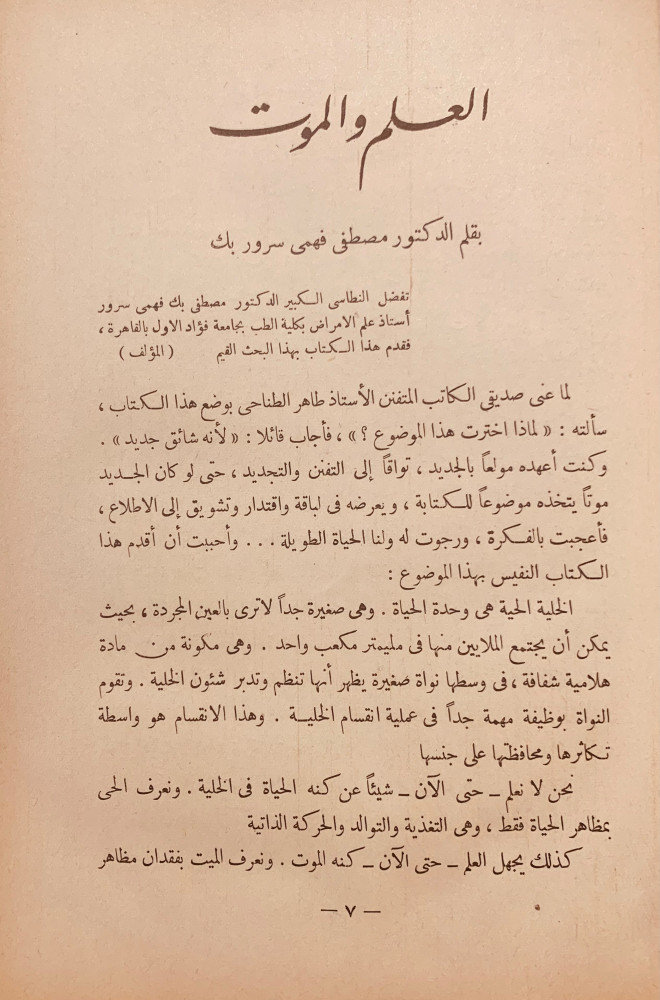 العلم والموت
بقلم الدكتور مصطفى فهمى سرور بك
تفضل النطاسى الكبير الدكتور مصطفى بك فهمى سرور
أستاذ علم الامراض بكلية الطب بجامعة فؤاد الاول بالقاهرة ،
فقدم هذا الكتاب بهذا البحث القيم ( المؤلف )
لما عنى صديقى الكاتب المتفنن الأستاذ طاهر الطناحى بوضع هذا الكتاب ،
سألته : « لماذا اخترت هذا الموضوع ؟ » ، فأجاب قائلا : « لأنه شائق جديد » .
وكنت أعهده مولعاً بالجديد ، تواقاً إلى التفنن والتجديد ، حتى لو كان الجديد
موتاً يتخذه موضوعاً للكتابة ، ويعرضه فى لباقة واقتدار وتشويق إلى الاطلاع ،
فأعجبت بالفكرة ، ورجوت له ولنا الحياة الطويلة ... وأحببت أن أقدم هذا
الكتاب النفيس بهذا الموضوع :
الخلية الحية هى وحدة الحياة . وهى صغيرة جداً لاترى بالعين المجردة ، بحيث
يمكن أن يجتمع الملايين منها فى مليمتر مكعب واحد . وهى مكونة من مادة
هلامية شفافة ، فى وسطها نواة صغيرة يظهر أنها تنظم وتدبر شئون الخلية . وتقوم
النواة بوظيفة مهمة جداً فى عملية انقسام الخلية . وهذا الانقسام هو واسطة
تكاثرها ومحافظتها على جنسها
نحن لا نعلم – حتى الآن – شيئاً عن كنه الحياة فى الخلية . ونعرف الحى
بمظاهر الحياة فقط ، وهى التغذية والتوالد والحركة الذاتية
كذلك يجهل العلم – حتى الآن – كنه الموت . ونعرف الميت بفقدان مظاهر
– ٧ –